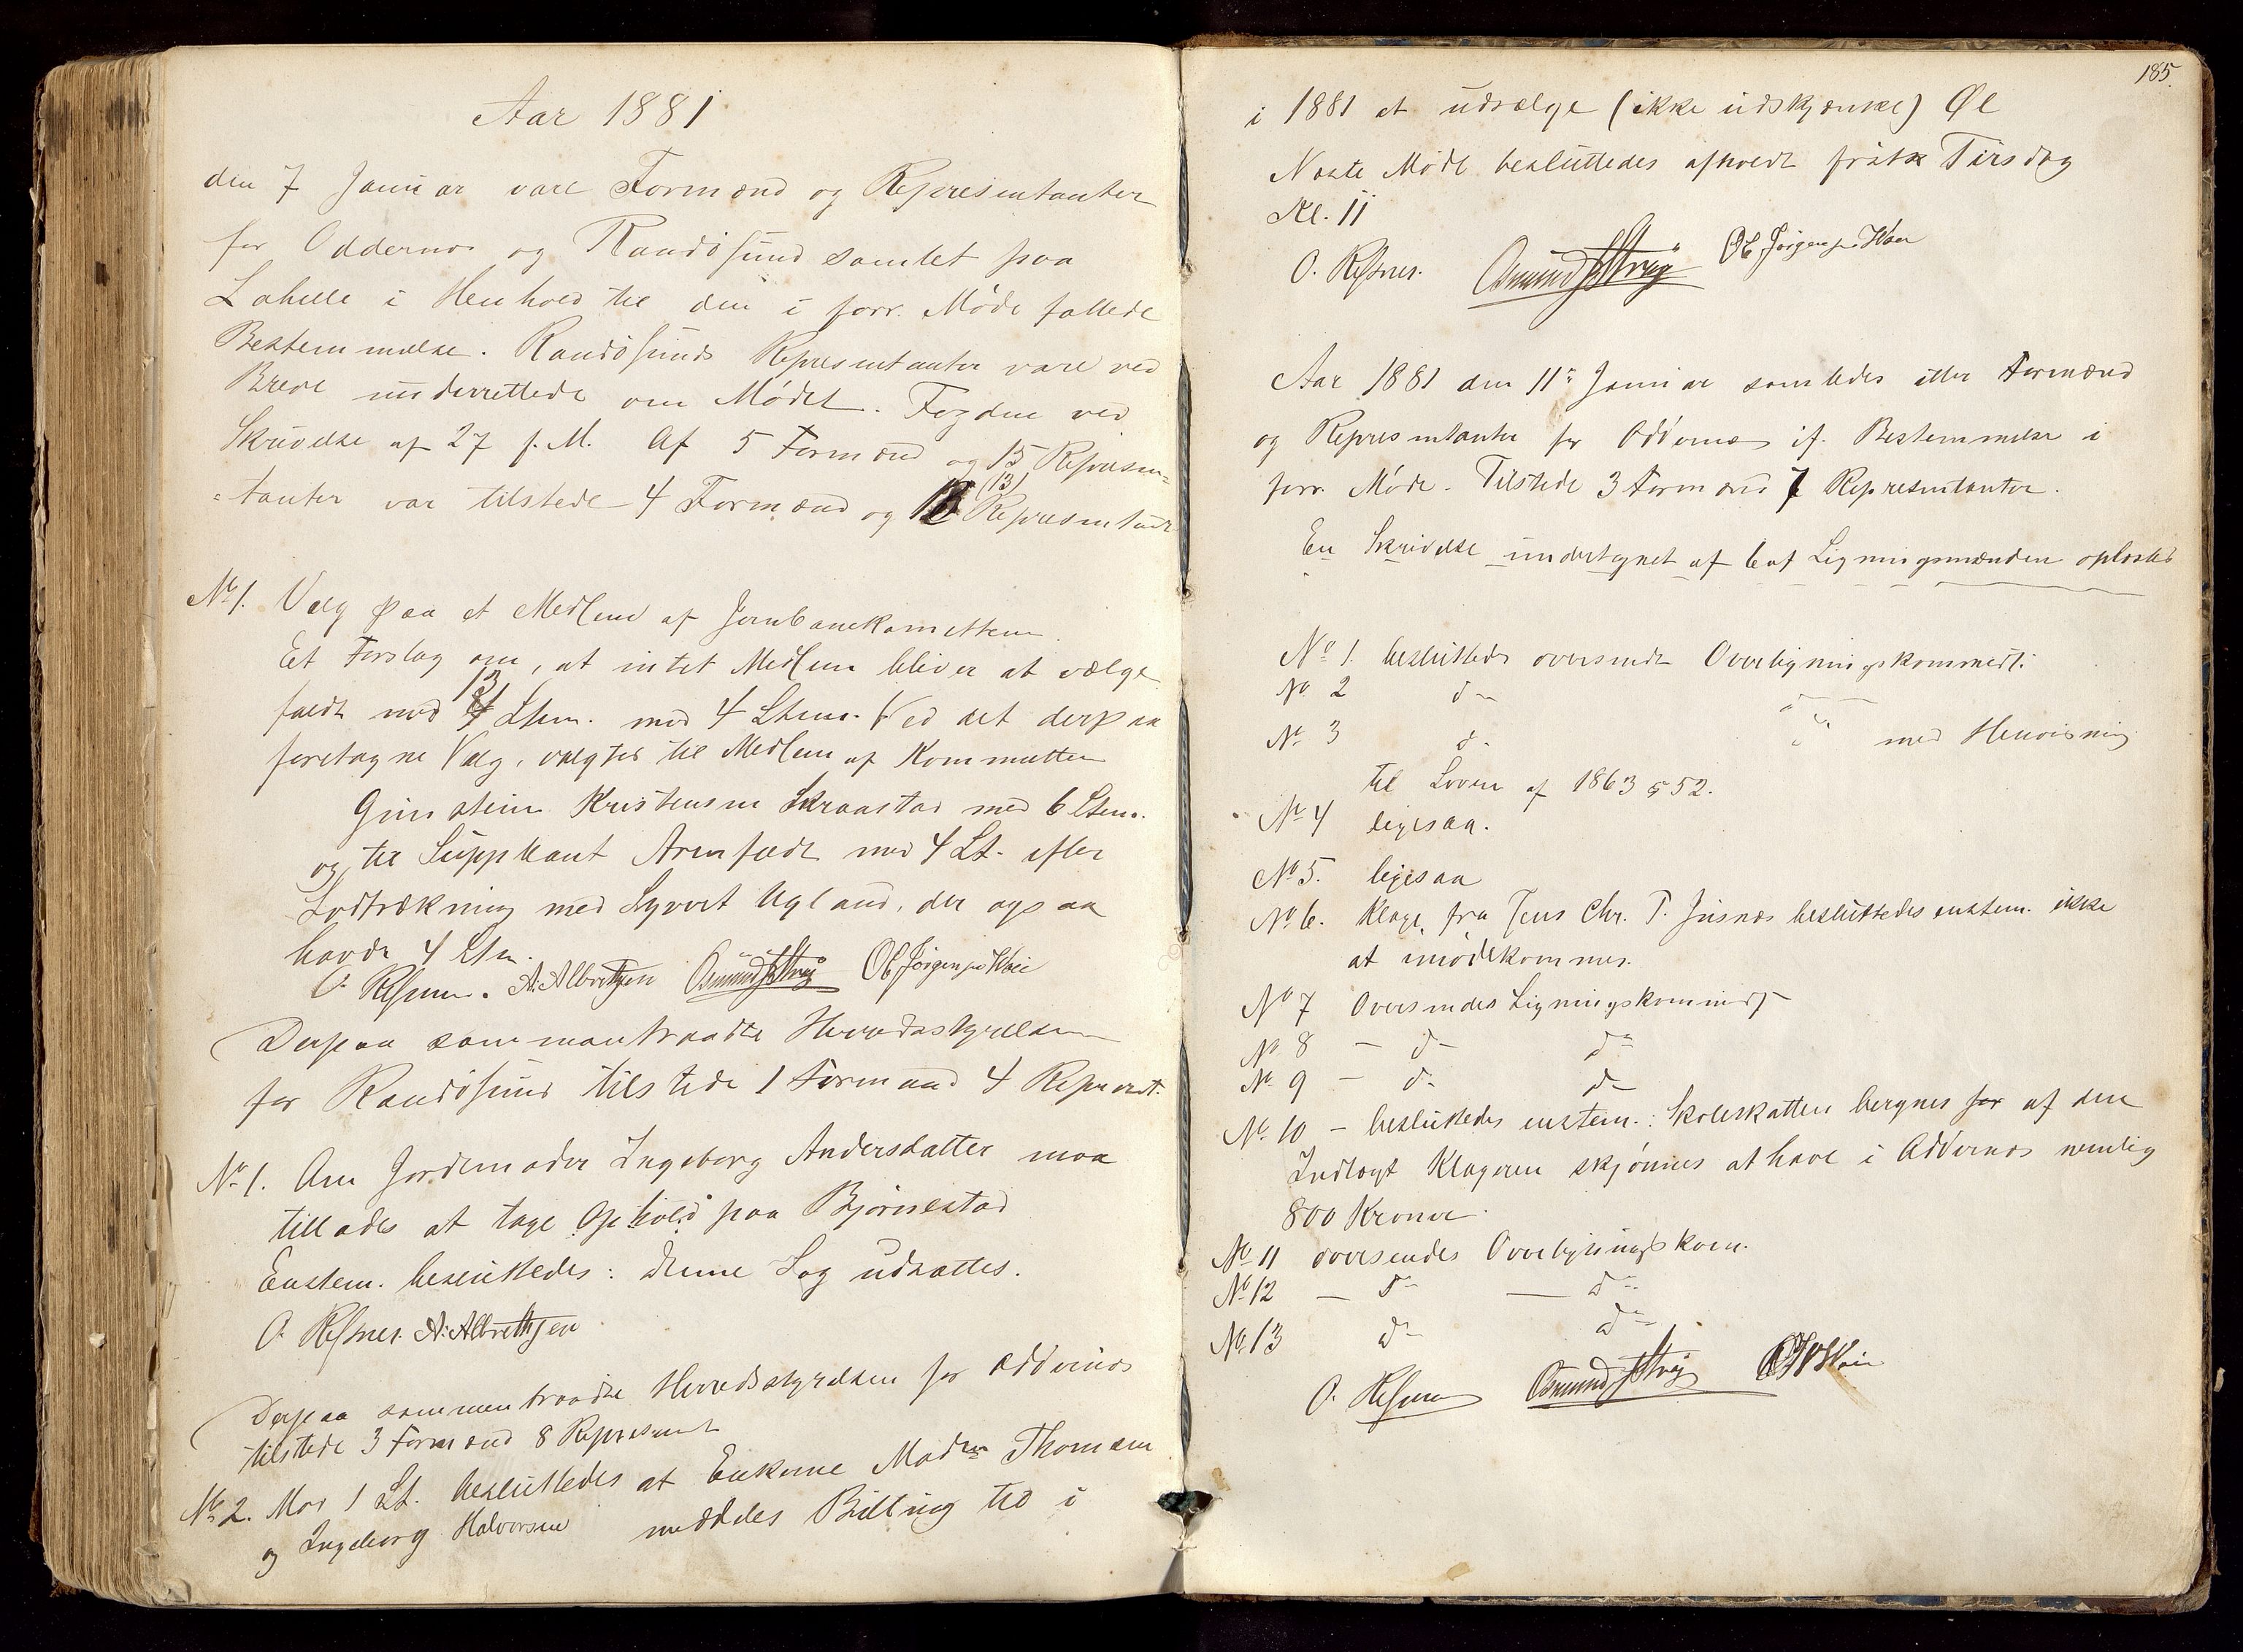 Aar 1881
den 7 Januar vare Formænd og Representanter
for Oddernes og Randøsund samlet paa
Lahelle i Henhold til den i forr. Møde fattede
Bestemmelse. Randøsunds Representanter vare ved
Breve underrettede om Mødet. Fogden ved
Skrivelse af 27 f. M. Af 5 Formænd og 15 Represen-
tanter var tilstede 4 Formænd og 13 (13) Representanter
No 1. Valg paa et Medlem af Jernbanekomitteen.
Et Forslag om, at intet Medlem bliver at vælge
faldt med 13 Stem. mod 4 Stem. Ved det derpaa
foretagne Valg, valgtes til Medlem af Kommitteen
Gunstein Kristensen Skraastad med 6 Stem.
og til Suppleant Arenfeldt med 4 St. efter
Lodtrækning med Syvert Ugland, der ogsaa
havde 4 Stm.
O. A. Albrethsen Osmund Ob. Jörgensen
Derpaa sammentraadte Herredsstyrelsen
for Randøsund tilstede 1 Formand 4 Represent.
No 1. Om Jordemoder Ingeborg Andersdatter maa
tillades at tage Ophold paa Bjørnestad
Enstem. besluttedes: denne Sag udsattes.
O. A. Albrethsen
Derpaa sammentraadte Herredsstyrelsen for Oddernes
tilstede 3 Formænd 8 Represent
No 2. Mod 1 St. besluttedes at Enkerne Madm Thomsen
og Ingeborg Halvorsen meddeles Billing til i
185.
i 1881 at udsælge (ikke udskjænke) Øl
Næste Møde besluttedes afholdt først Tirsdag
Kl. 11
O. Osmund Ob. Jörgensen
Aar 1881 den 11te Januar samledes atter Formænd
og Representanter for Oddernes if. Bestemmelse i
forr. Møde. Tilstede 3 Formænd 7 Representanter.
En Skrivelse undertegnet af 6 af Ligningsmænden oplæstes
No 1. besluttedes oversendt Overligningskommed:
No 2 do do
No 3 do do med Henvisning
til Loven af 1863 § 52.
No 4 ligesaa.
No 5. ligesaa
No 6. Klage fra Jens Chr. T. besluttedes enstem. ikke
at imødekommes.
No 7 Oversendes Ligningskommed
No 8 - do do
No 9 - do do
No 10 - besluttedes enstem.: Skoleskatten beregnes for af den
Indtægt Klageren skjønnes at have i Oddernes nemlig
800 Kroner.
No 11 oversendes Overligningskom.
No 12 — do — do
No 13 do do
O. Osmund